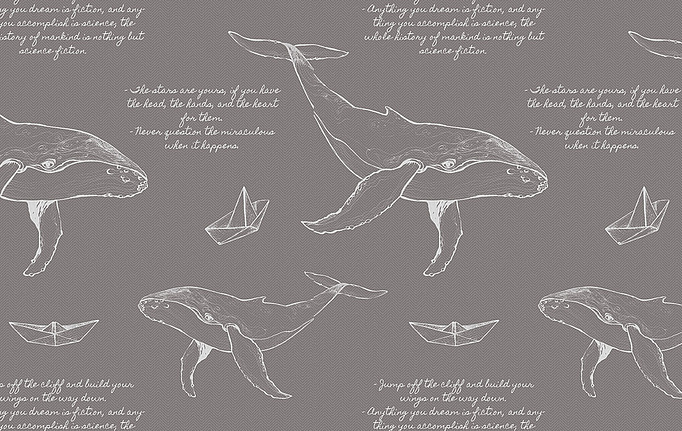 ng you dream is fiction, and any-
you accomplish is science; the
istory of mankind is nothing but
science-fiction.
- Anything you dream is fiction, and any-
thing you accomplish is science; the
whole history of mankind is nothing but
science-fiction.
- The stars are yours, if you have
the head, the hands, and the heart
for them.
- Never question the miraculous
when it happens.
- The stars are yours, if you have
the head, the hands, and the heart
for them.
- Never question the miraculous
when it happens.
off the cliff and build your
wings on the way down.
ng you dream is fiction, and any-
you accomplish is science; the
- Jump off the cliff and build your
wings on the way down.
- Anything you dream is fiction, and any-
thing you accomplish is science; the